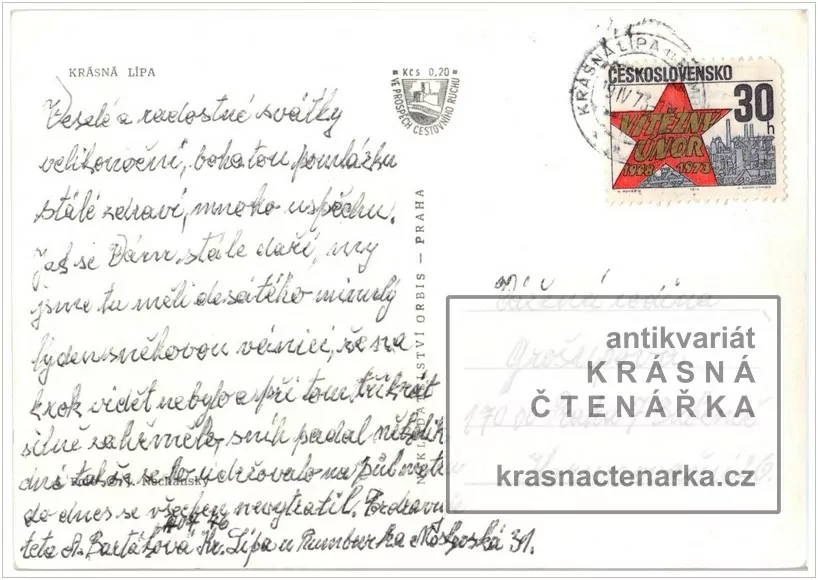 KRÁSNÁ LÍPA
Kčs 0,20
VE PROSPĚCH CESTOVNÍHO RUCHU
KRÁSNÁ LÍPA
ČESKOSLOVENSKO
30 h
VÍTĚZNÝ
ÚNOR
1948 1973
Veselé a radostné svátky
velikonoční, bohatou pomlázku
stálé zdraví, mnoho uspěchu.
Jak se Vám stále daří, my
jsme tu měli desátého minulý
týden sněhovou vánici, že na
krok vidět nebylo a při tom tříkrát
silně zahřmělo, sníh padal několik
dní tak že se to udržovalo na půl metru
do dnes se všechen nevytratil. Pozdravuje
teta A. Bartášová Kr. Lípa u Rumburka 31.
NAKLADATELSTVÍ ORBIS – PRAHA
Vážená rodina
170 00 Praha 7
antikvariát
KRÁSNÁ
ČTENÁŘKA
krasnactenarka.cz